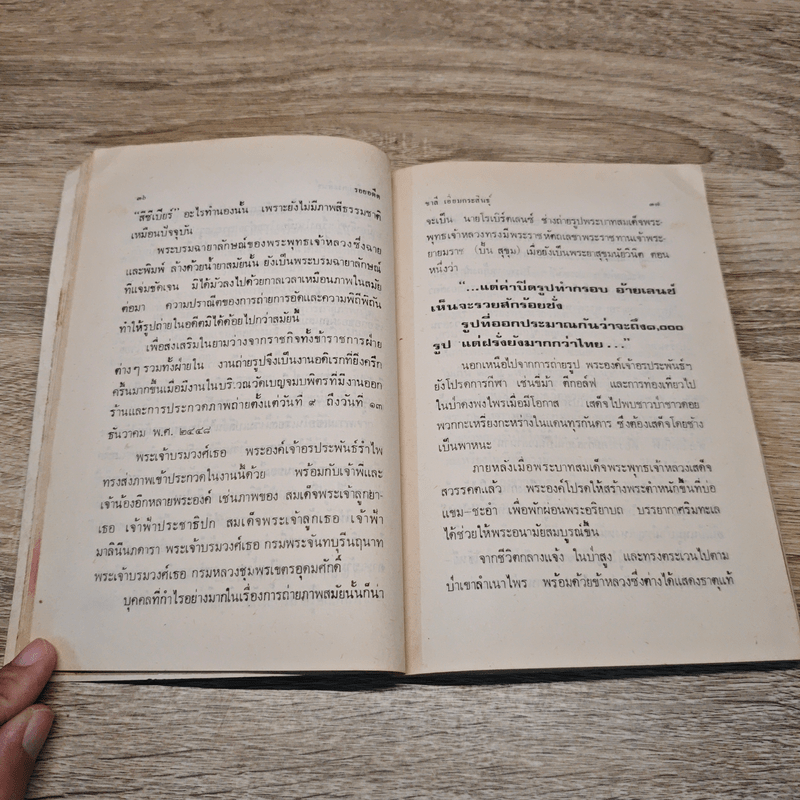 ๓๖ รอยอดีต
"ลิซิเบียร์" อะไรทำนองนั้น เพราะยังไม่มีภาพสีธรรมชาติ
เหมือนปัจจุบัน
พระบรมฉายาลักษณ์ของพระพุทธเจ้าหลวงซึ่งฉาย
และพิมพ์ ล้างด้วยน้ำยาสมัยนั้น ยังเป็นพระบรมฉายาลักษณ์
ที่แจ่มชัดเจน มิได้มัวลงไปด้วยกาลเวลาเหมือนภาพในสมัย
ต่อมา ความปราณีตของการถ่ายการอัดและความพิถีพิถัน
ทำให้รูปถ่ายในอดีตมิได้ด้อยไปกว่าสมัยนี้
เพื่อส่งเสริมในยามว่างจากราชกิจทั้งข้าราชการฝ่าย
ต่างๆ รวมทั้งฝ่ายใน งานถ่ายรูปจึงเป็นงานอดิเรกที่ยิ่งครึก
ครื้นมากขึ้นเมื่อมีงานในบริเวณวัดเบญจมบพิตรที่มีงานออก
ร้านและการประกวดภาพถ่ายตั้งแต่วันที่ ๙ ถึงวันที่ ๑๓
ธันวาคม พ.ศ. ๒๔๔๘
พระเจ้าบรมวงศ์เธอ พระองค์เจ้าอรประพันธ์รำไพ
ทรงส่งภาพเข้าประกวดในงานนี้ด้วย พร้อมกับเจ้าพี่และ
เจ้าน้องอีกหลายพระองค์ เช่นภาพของ สมเด็จพระเจ้าลูกยา-
เธอ เจ้าฟ้าประชาธิปก สมเด็จพระเจ้าลูกเธอ เจ้าฟ้า
มาลินีนภดารา พระเจ้าบรมวงศ์เธอ กรมพระจันทบุรีนฤนาท
พระเจ้าบรมวงศ์เธอ กรมหลวงชุมพรเขตรอุดมศักดิ์
บุคคลที่กำไรอย่างมากในเรื่องการถ่ายภาพสมัยนั้นก็น่า
ชาลี เอี่ยมกระสินธุ์
จะเป็น นายโรเบิร์ตเลนซ์ ช่างถ่ายรูปพระบาทสมเด็จพระ-
พุทธเจ้าหลวงทรงมีพระราชหัตถเลขาพระราชทานเจ้าพระ-
ยายมราช (ปั้น สุขุม) เมื่อยังเป็นพระยาสุขุมนัยวินิต ตอน
หนึ่งว่า
"...แต่ค่าปิดรูปทำกรอบ อ้ายเลนซ์
เห็นจะรวยสักร้อยชั่ง
รูปที่ออกประมาณกันว่าจะถึง๑,๐๐๐
รูป แต่ฝรั่งยังมากกว่าไทย..."
นอกเหนือไปจากการถ่ายรูป พระองค์เจ้าอรประพันธ์ฯ
ยังโปรดการกีฬา เช่นขี่ม้า ตีกอล์ฟ และการท่องเที่ยวไป
ในป่าดงพงไพรเมื่อมีโอกาส เสด็จไปพบชาวป่าชาวดอย
พวกกะเหรี่ยงกะหร่างในแดนทุรกันดาร ซึ่งต้องเสด็จโดยช้าง
เป็นพาหนะ
ภายหลังเมื่อพระบาทสมเด็จพระพุทธเจ้าหลวงเสด็จ
สวรรคตแล้ว พระองค์โปรดให้สร้างพระตำหนักขึ้นที่บ่อ
แขม-ชะอำ เพื่อพักผ่อนพระอริยาบถ บรรยากาศริมทะเล
ได้ช่วยให้พระอนามัยสมบูรณ์ขึ้น
จากชีวิตกลางแจ้ง ในป่าสูง และทรงตระเวนไปตาม
ป่าเขาลำเนาไพร พร้อมด้วยข้าหลวงซึ่งต่างได้แสดงธาตุแท้